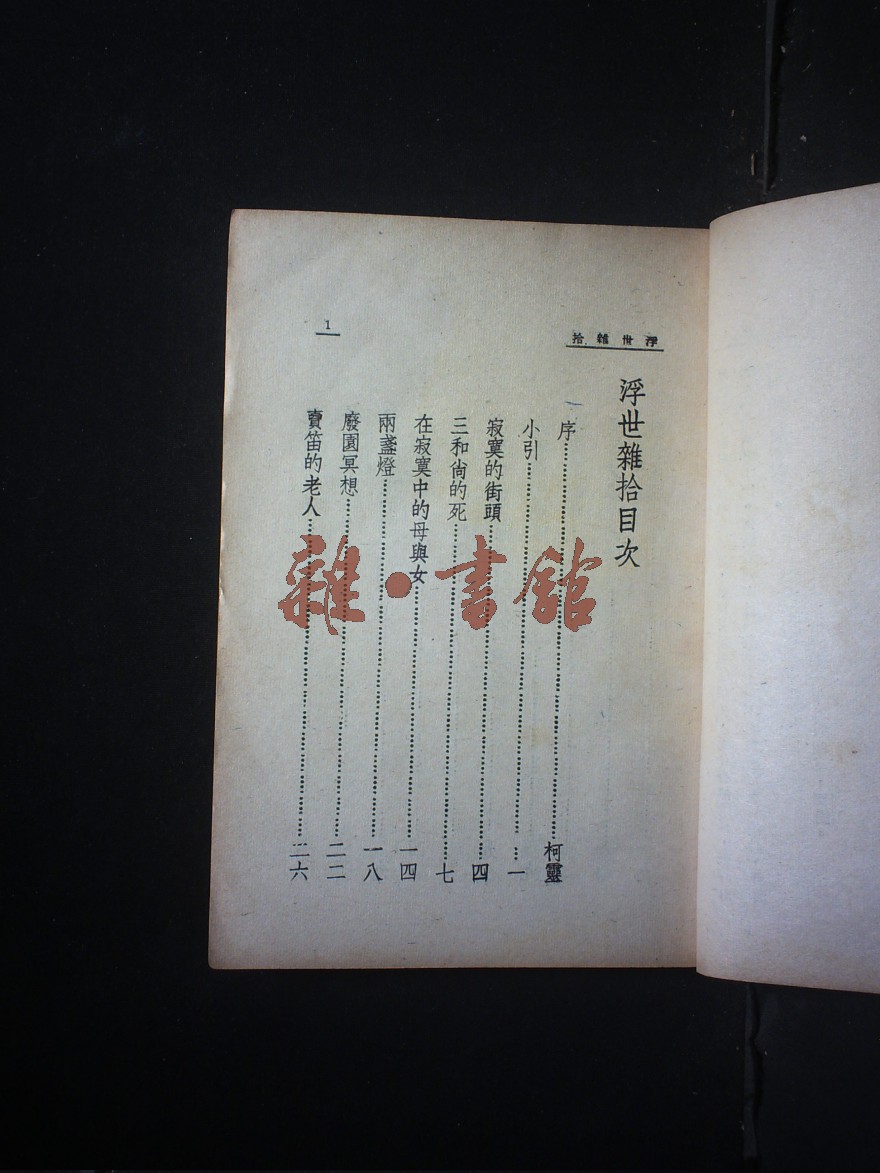 浮世雜拾
1
浮世雜拾目次
序……柯靈
小引……一
寂寞的街頭……四
三和尙的死……七
在寂寞中的母與女……一四
兩盞燈……一八
廢園冥想……二二
賣笛的老人……二六
雜·書館